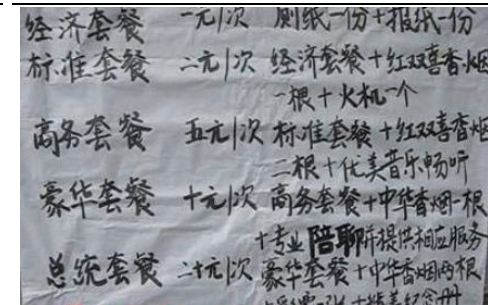 经济套餐 一元/次 厕纸一份+报纸一份
标准套餐 二元/次 经济套餐+红双喜香烟
一根+火机一个
商务套餐 五元/次 标准套餐+红双喜香烟
二根+优美音乐畅听
豪华套餐 十元/次 商务套餐+中华香烟一根
+专业陪聊师提供相应服务
总统套餐 二十元/次 豪华套餐+中华香烟两根